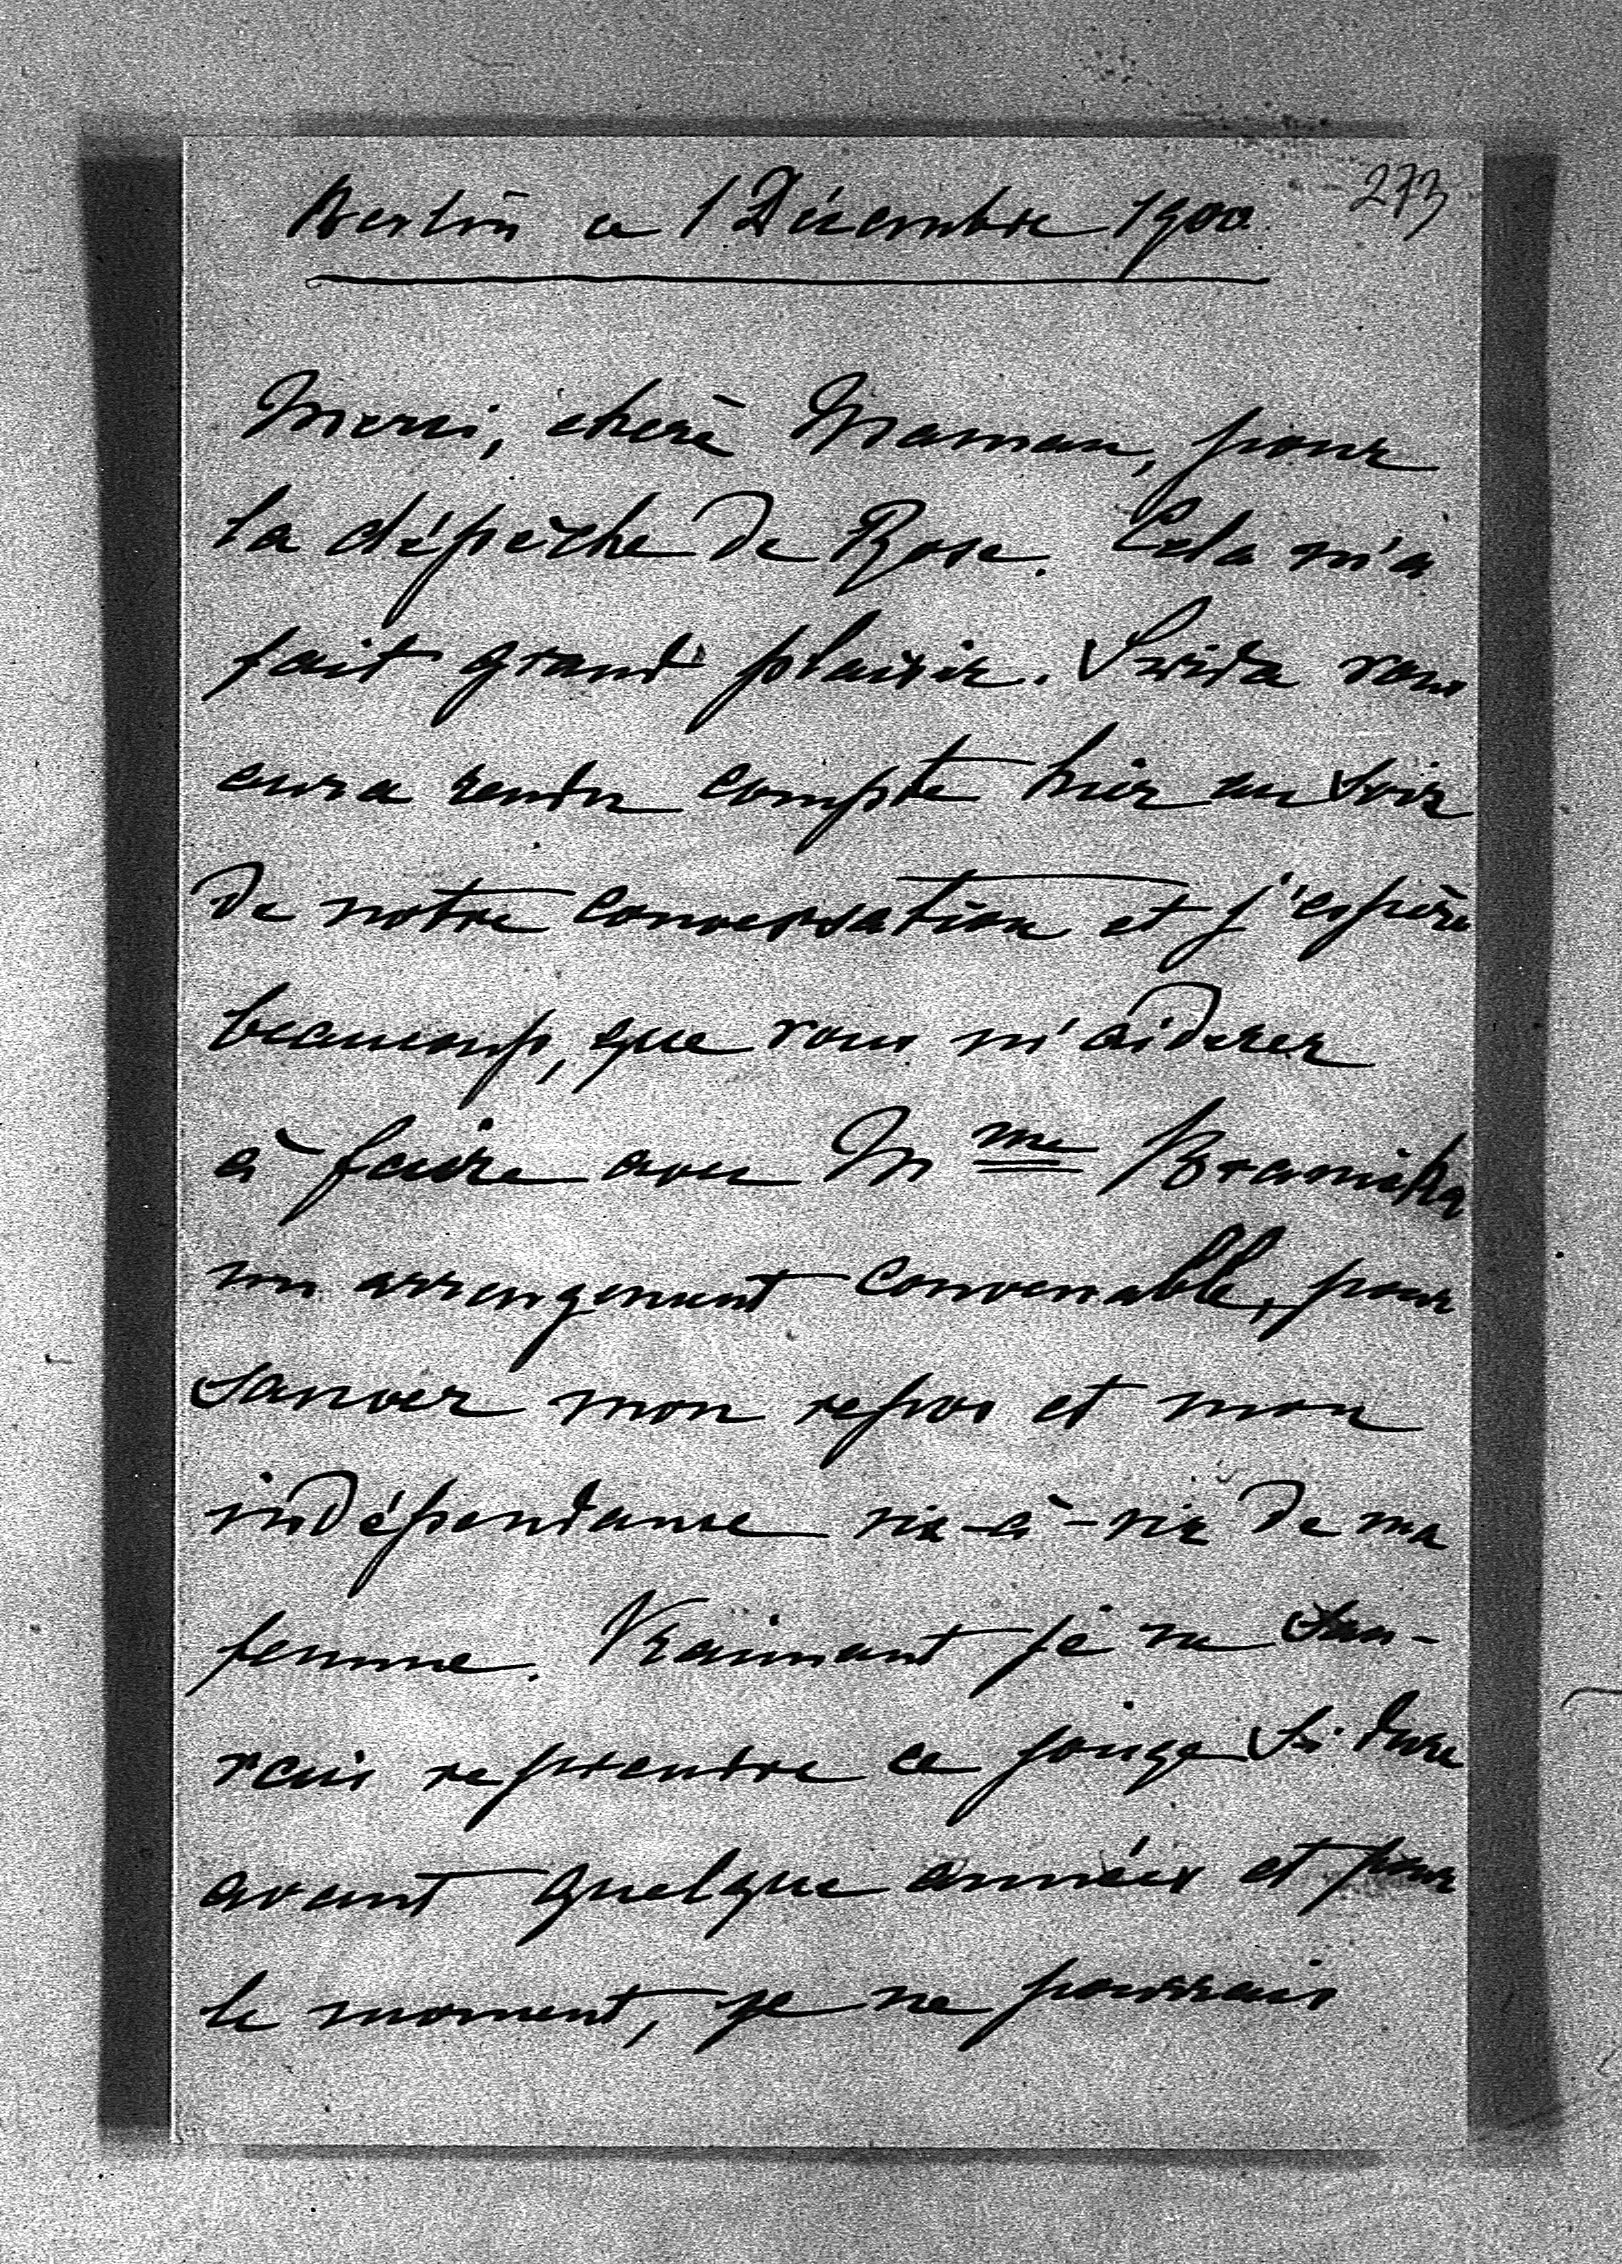 273
Berlin ce 1 Décembre 1900.
Merci, chère Maman, pour
la dépêche de Rose. Cela m'a
fait grand plaisir. vous
aura rendu compte hier au soir
de notre conversation et j'espère
beaucoup, que vous m'aiderez
à faire avec Mme Branicka
un arrangement convenable, pour
sauver mon repos et mon
indépendance vis-à-vis de ma
femme. Vraimant je ne sau-
rais reprendre ce jouge si dure
avant quelque années et pour
le moment, je ne pourrais